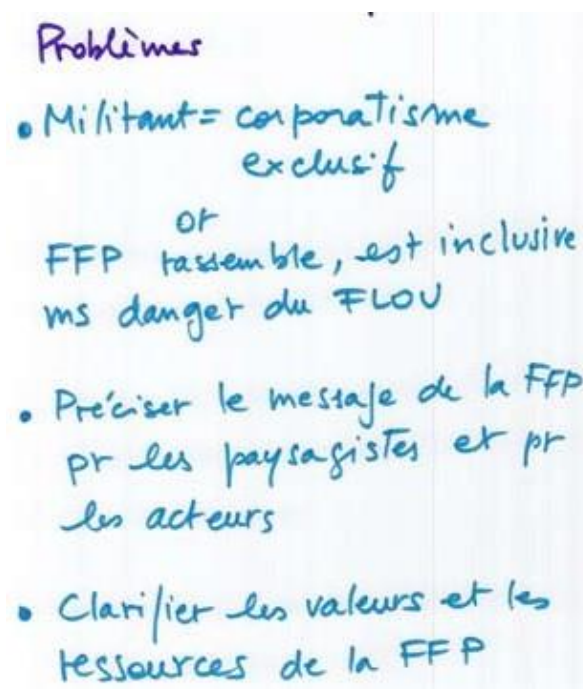 Problèmes
• Militant = corporatisme
exclusif
or
FFP rassemble, est inclusive
ms danger du FLOU
• Préciser le message de la FFP
pr les paysagistes et pr
les acteurs
• Clarifier les valeurs et les
ressources de la FFP